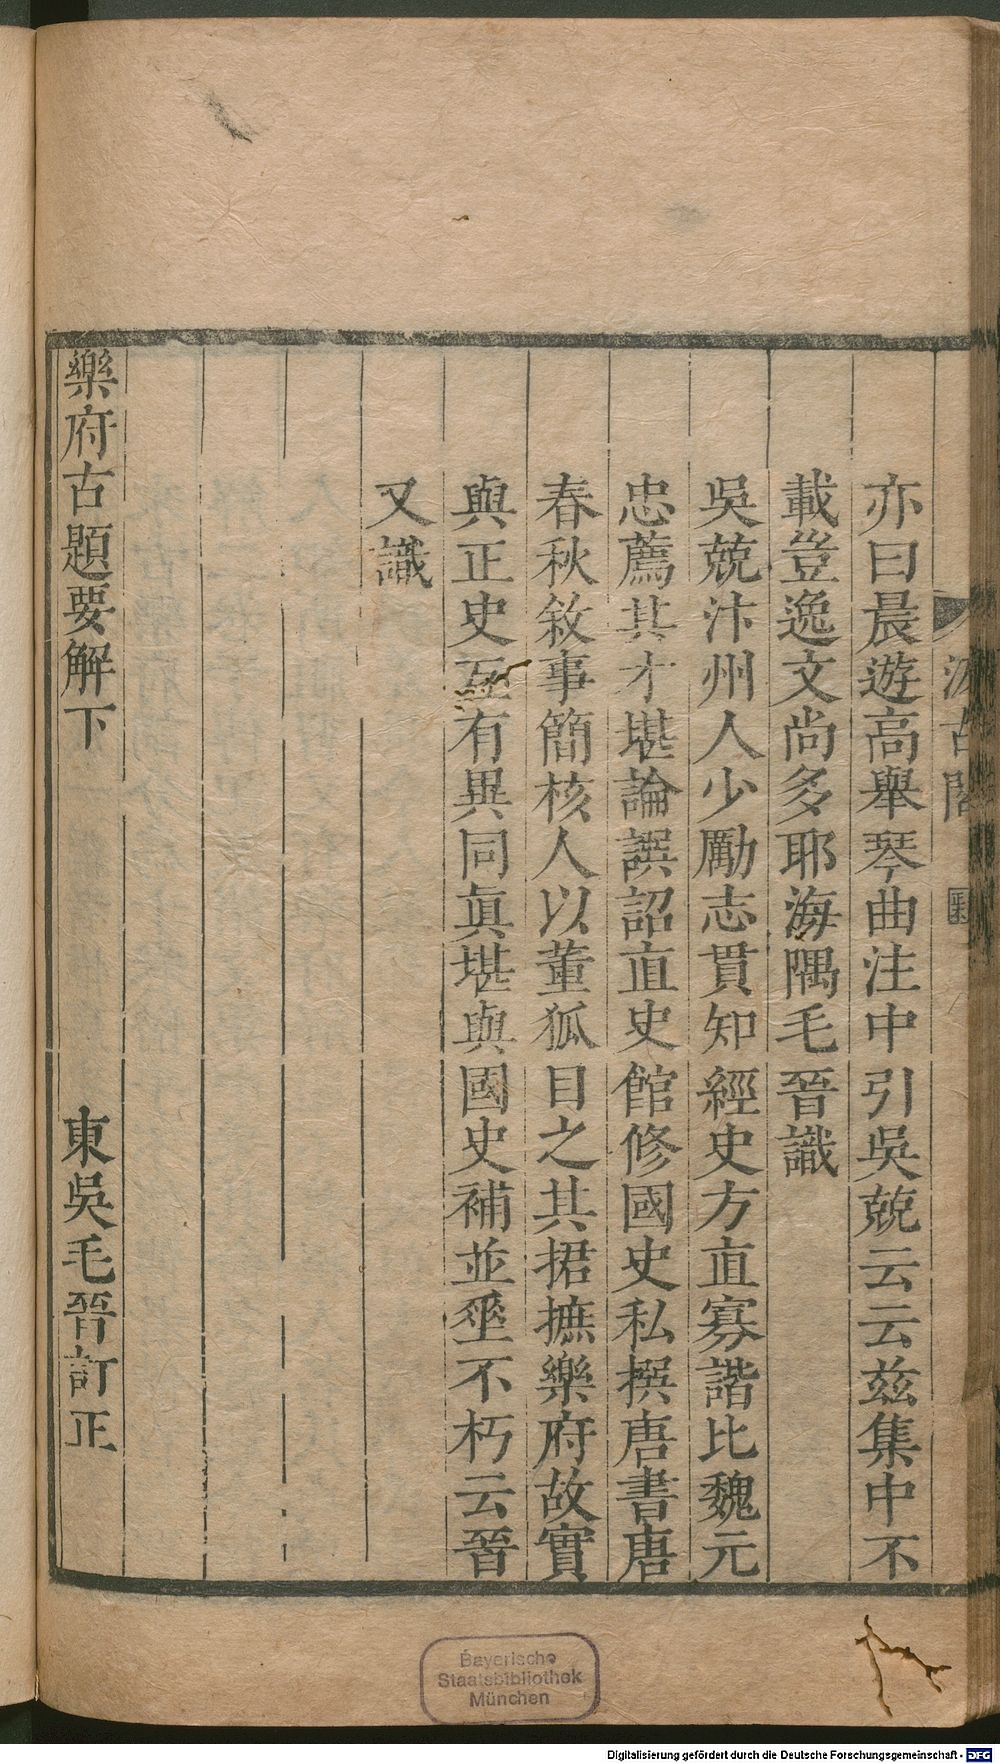 汲古閣
亦曰晨遊高舉琴曲注中引吳兢云云兹集中不
載豈逸文尚多耶海隅毛晉識
吳兢汴州人少勵志貫知經史方直寡諧比魏元
忠薦其才堪論譔詔直史館修國史私撰唐書唐
春秋敘事簡核人以董狐目之其捃摭樂府故實
與正史互有異同眞堪與國史補並垂不朽云晉
又識
樂府古題要解下 東吳毛晉訂正
Bayerische
Staatsbibliothek
München
Digitalisierung gefördert durch die Deutsche Forschungsgemeinschaft - DFG